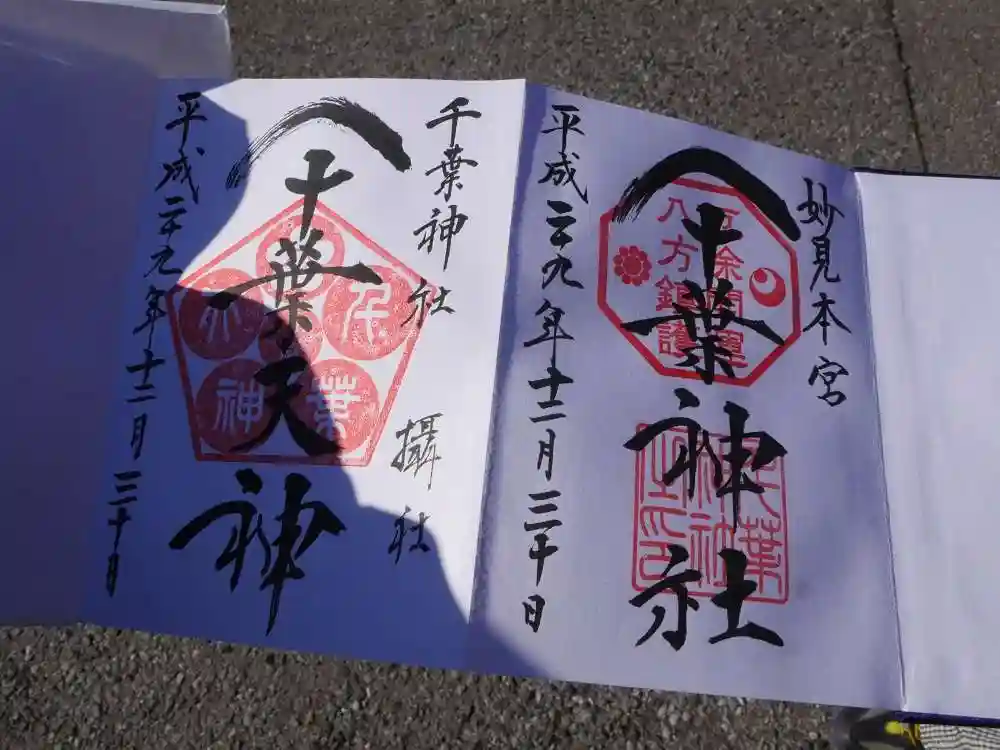 妙見本宮
千葉神社
八方鎮護
千葉
神社
之印
平成二十九年十二月三十日
千葉神社 攝社
千葉天神
平成二十九年十二月三十日